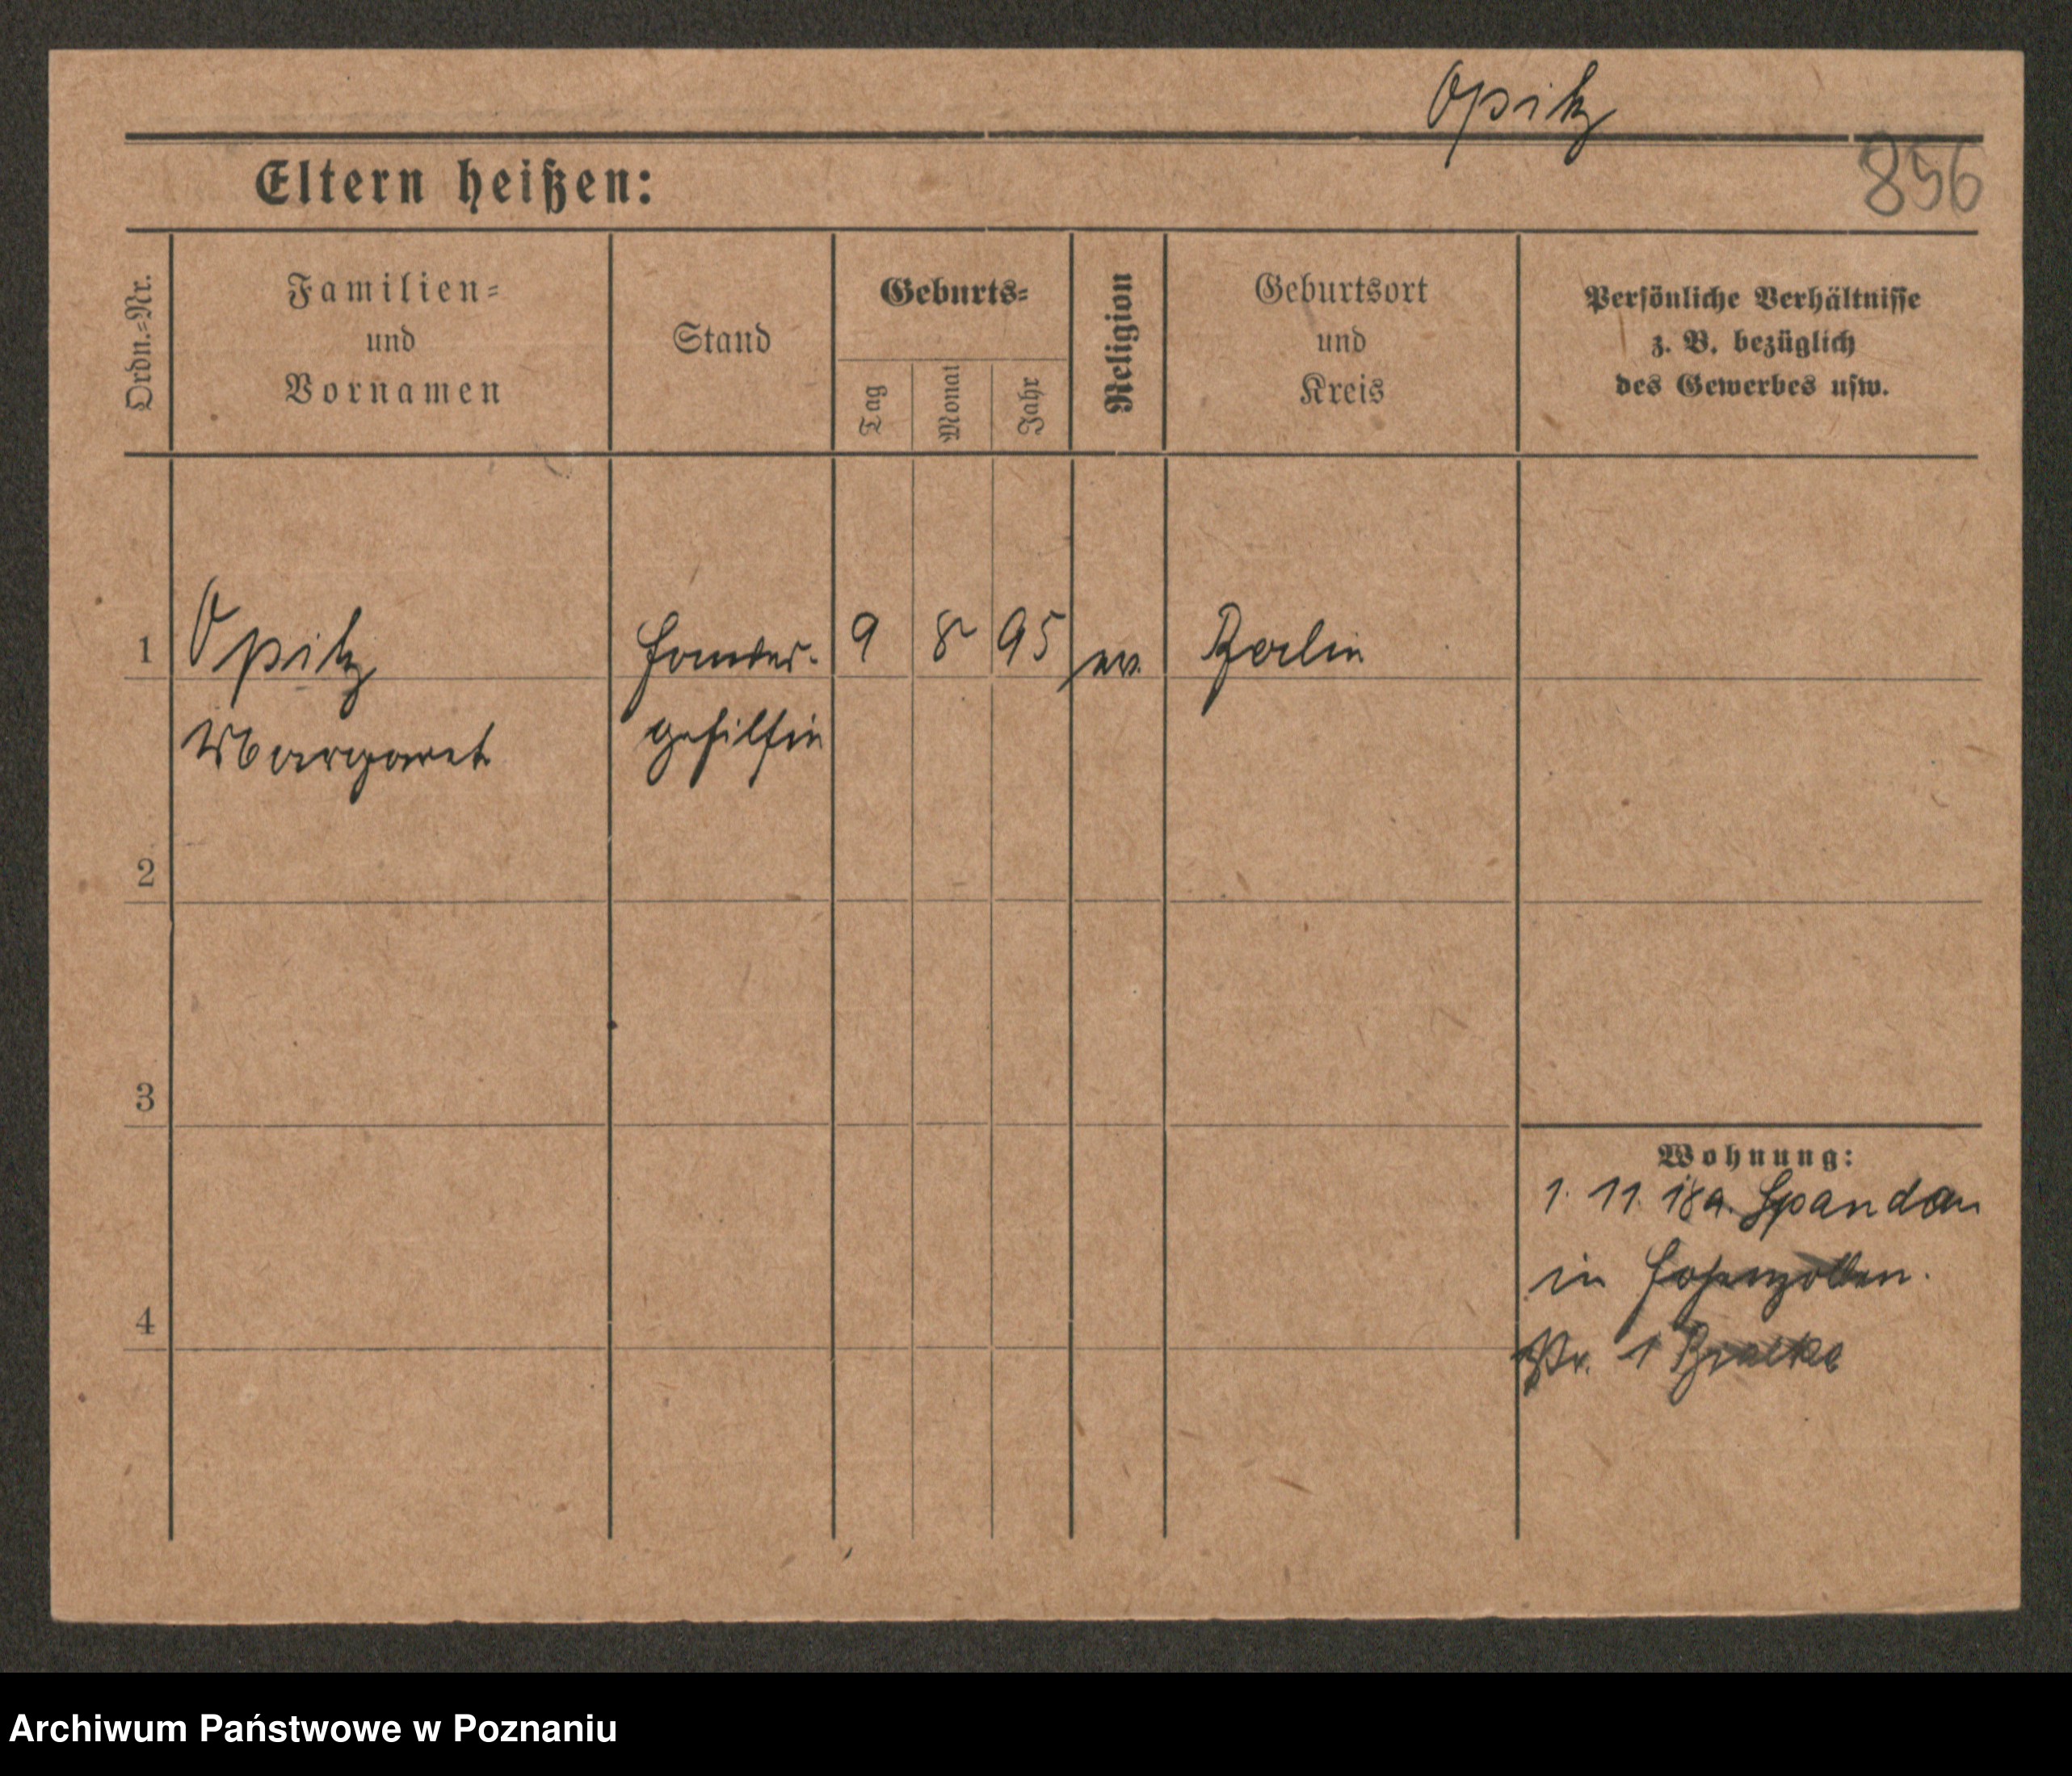 Opitz
856
Eltern heißen:
Ordn.-Nr.
Familien-
und
Vornamen
Stand
Geburts-
Tag
Monat
Jahr
Religion
Geburtsort
und
Kreis
Persönliche Verhältnisse
z. B. bezüglich
des Gewerbes usw.
1
Opitz
9
8
95
ev.
Berlin
Margaret
gehilfin
2
3
Wohnung:
1. 11. 18 a. Spandau
in Hohenzollern.
4
Str. 1
Archiwum Państwowe w Poznaniu